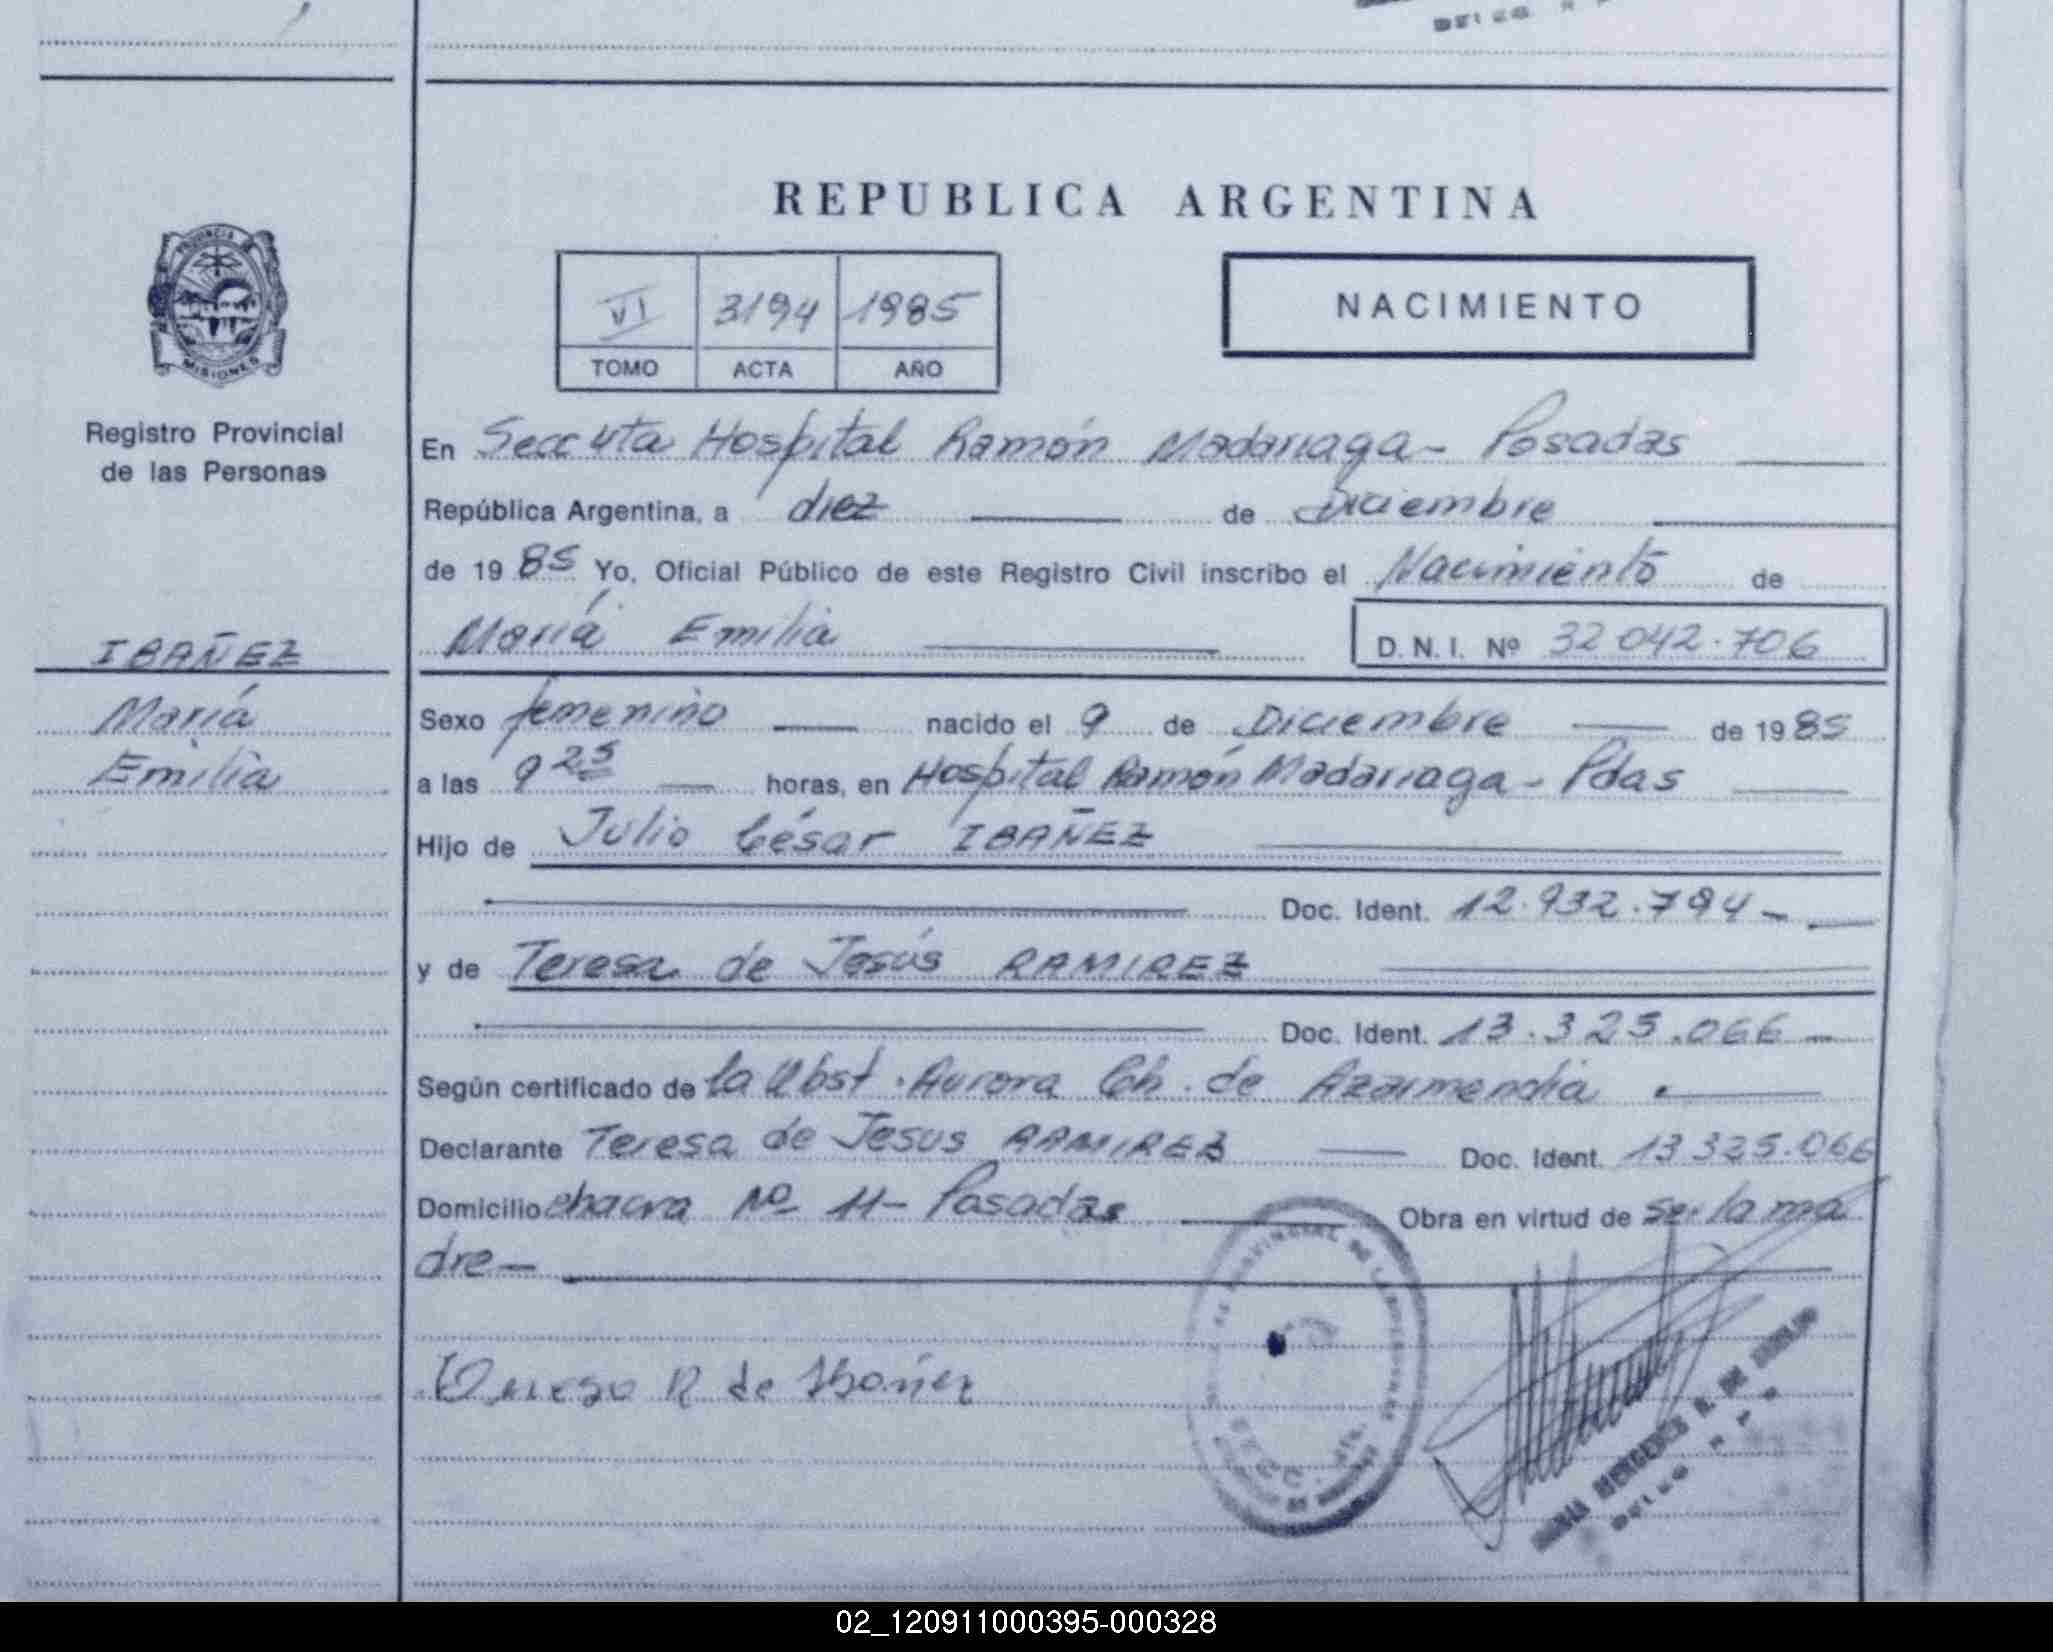 REPUBLICA ARGENTINA
PROVINCIA DE
MISIONES
VI 3194 1985
TOMO ACTA AÑO
NACIMIENTO
Registro Provincial
de las Personas
En Secc 4ta Hospital Ramón Madariaga - Posadas
República Argentina, a diez de Diciembre
de 1985 Yo, Oficial Público de este Registro Civil inscribo el Nacimiento de
María Emilia D.N.I. Nº 32.042.706
IBAÑEZ
María
Emilia
Sexo femenino nacido el 9 de Diciembre de 1985
a las 9 25 horas, en Hospital Ramón Madariaga - Pdas
Hijo de Julio César IBAÑEZ
Doc. Ident. 12.932.794 -
y de Teresa de Jesús RAMIREZ
Doc. Ident. 13.325.066 -
Según certificado de la Obst. Aurora Ch. de Azarmendia
Declarante Teresa de Jesus RAMIREZ Doc. Ident. 13.325.066
Domicilio chacra Nº 11 - Posadas Obra en virtud de ser la ma
dre -
R de Ibañez
PROVINCIAL DE LAS PERSONAS
MERCEDES R. DE
02_120911000395-000328